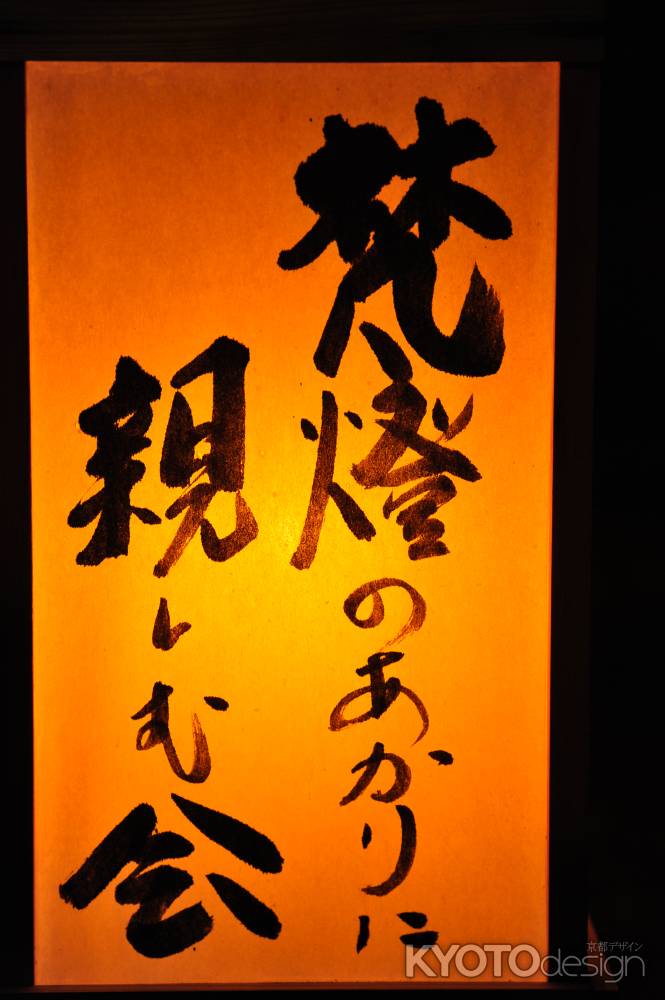 梵燈のあかりに
親しむ会
京都デザイン
KYOTOdesign